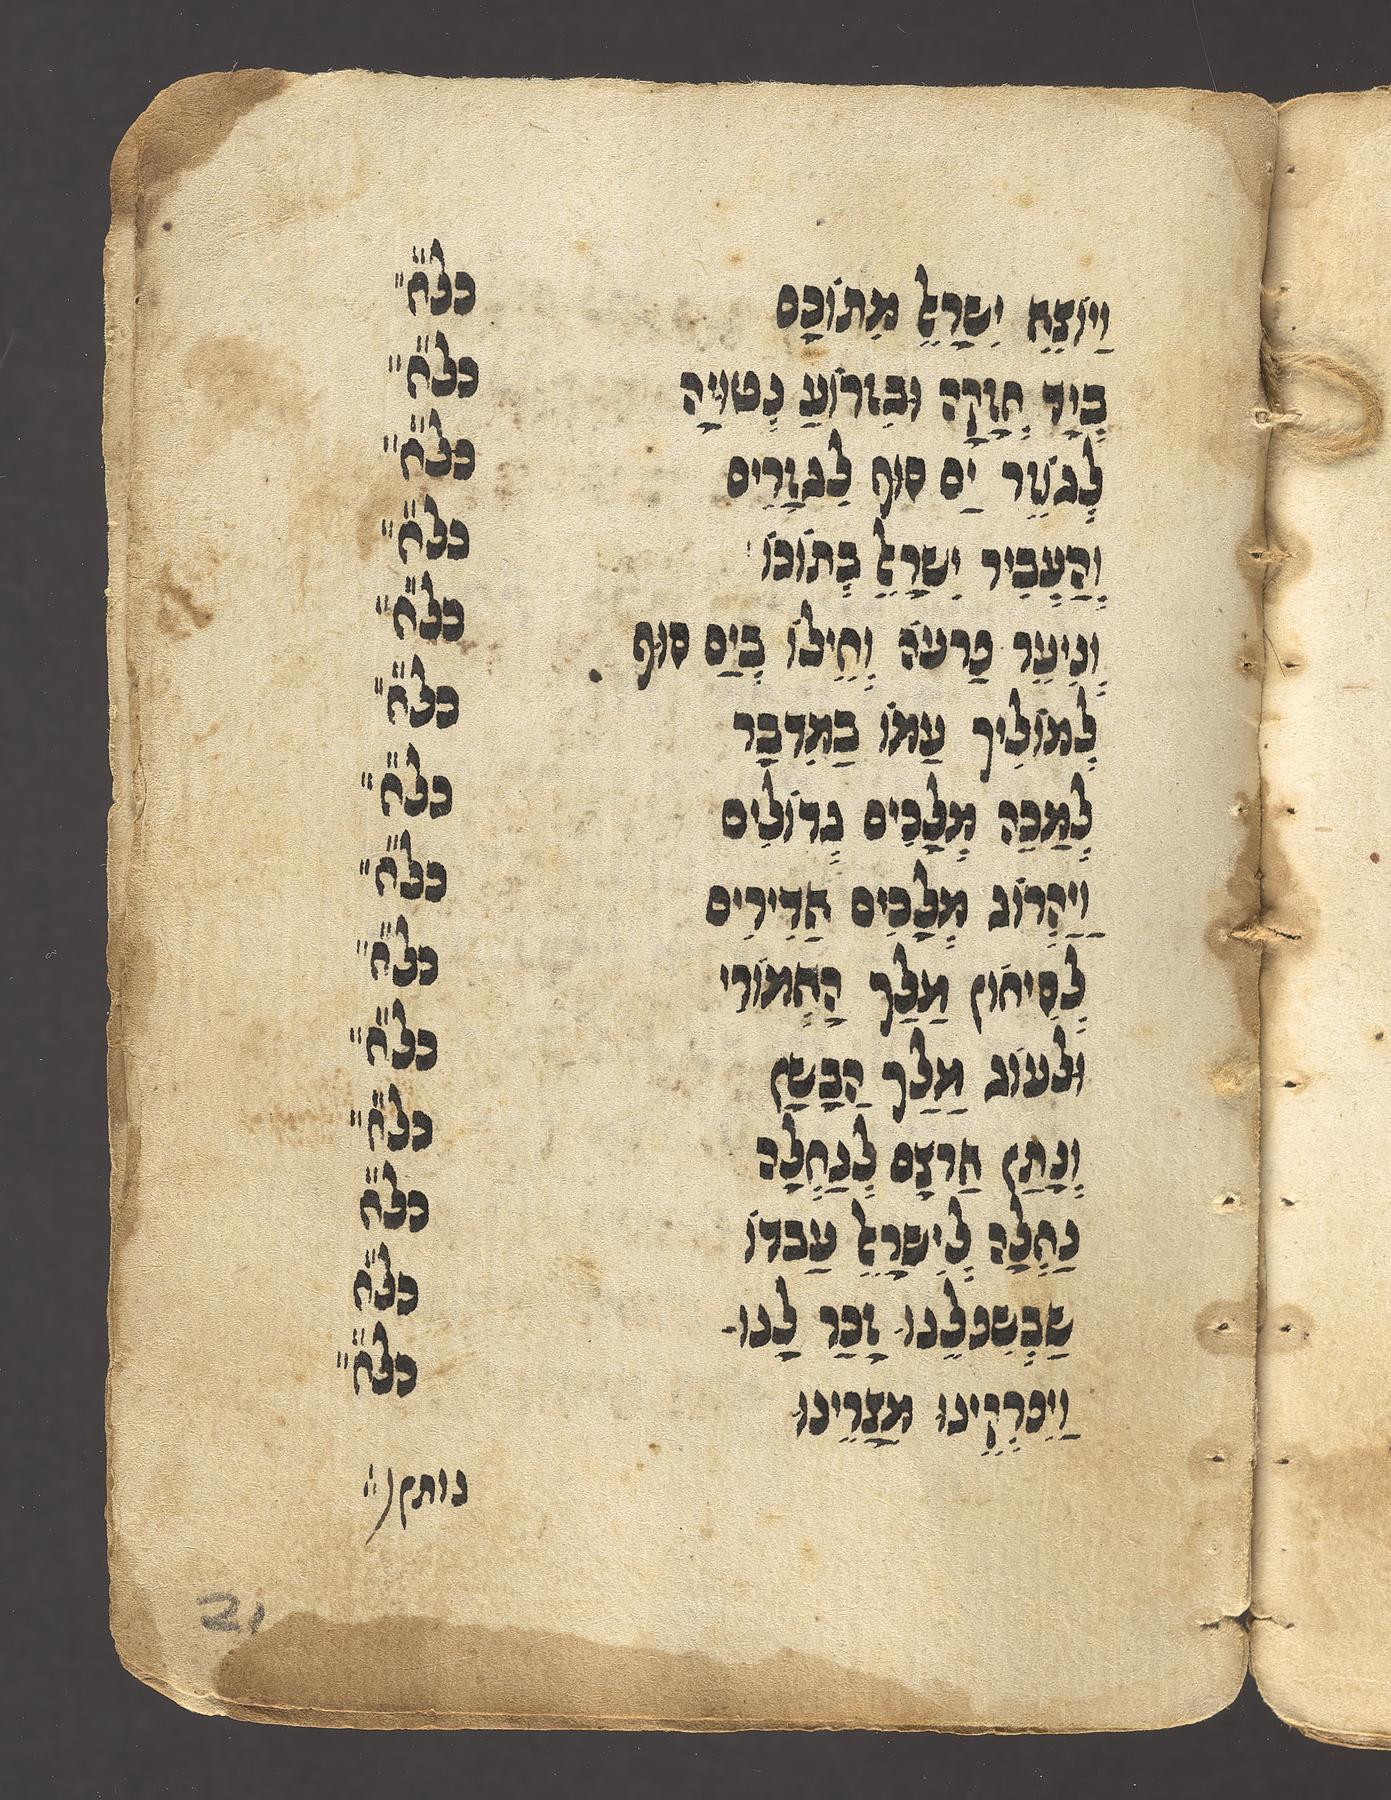 וַיּוֹצֵא יִשְׂרָאֵל מִתּוֹכָם כלח״
בְּיָד חֲזָקָה וּבִזְרוֹעַ נְטוּיָה כלח״
לְגוֹזֵר יַם סוּף לִגְזָרִים כלח״
וְהֶעֱבִיר יִשְׂרָאֵל בְּתוֹכוֹ כלח״
וְנִיעֵר פַּרְעֹה וְחֵילוֹ בְּיַם סוּף כלח״
לְמוֹלִיךְ עַמּוֹ בַּמִּדְבָּר כלח״
לְמַכֵּה מְלָכִים גְּדוֹלִים כלח״
וַיַּהֲרוֹג מְלָכִים אַדִּירִים כלח״
לְסִיחוֹן מֶלֶךְ הָאֱמוֹרִי כלח״
וּלְעוֹג מֶלֶךְ הַבָּשָׁן כלח״
וְנָתַן אַרְצָם לְנַחֲלָה כלח״
נַחֲלָה לְיִשְׂרָאֵל עַבְדּוֹ כלח״
שֶׁבְּשִׁפְלֵנוּ זָכַר לָנוּ כלח
וַיִּפְרְקֵינוּ מִצָּרֵינוּ כלח״
נותן
21